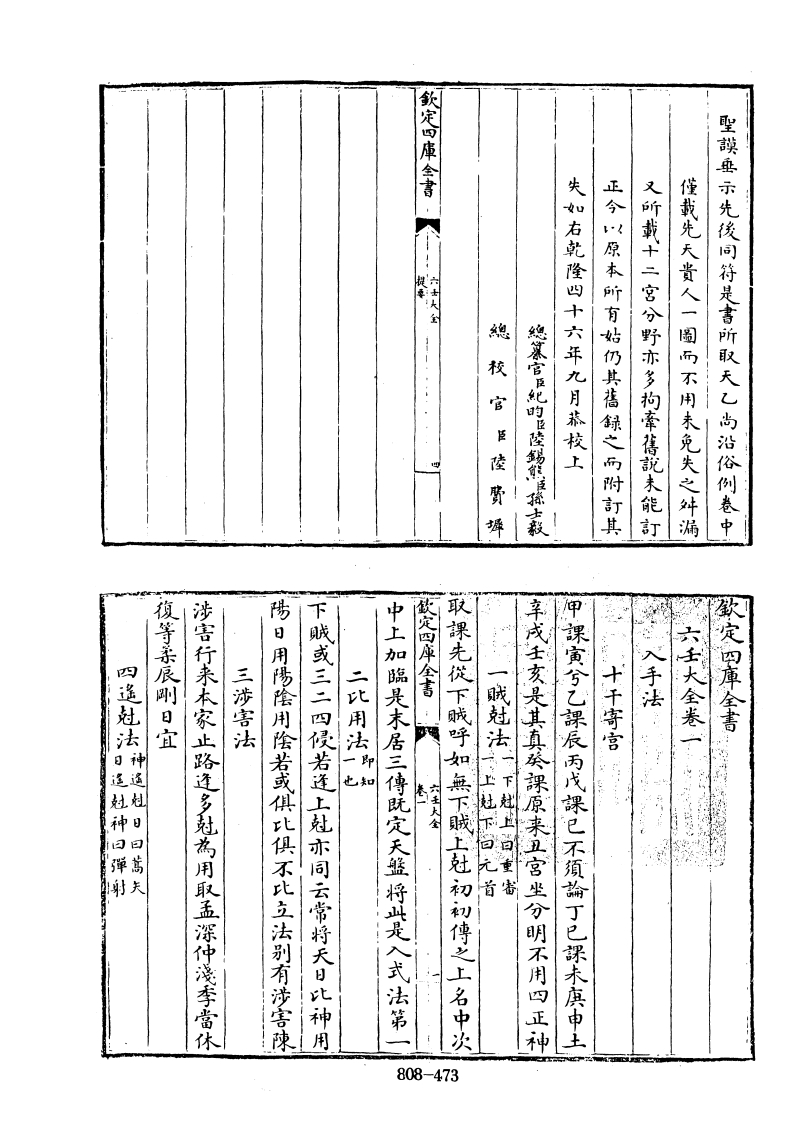 聖謨垂示先後同符是書所取天乙尚沿俗例卷中
僅載先天貴人一圖而不用未免失之舛漏
又所載十二宮分野亦多拘牽舊說未能訂
正今以原本所有姑仍其舊録之而附訂其
失如右乾隆四十六年九月恭校上
總纂官臣紀昀臣陸錫熊臣孫士毅
總校官臣陸費墀
欽定四庫全書
六壬大全
提要
四
欽定四庫全書
六壬大全卷一
入手法
十干寄宮
甲課寅兮乙課辰丙戊課巳不須論丁巳課未庚申土
辛戌壬亥是其真癸課原來丑宮坐分明不用四正神
一賊尅法一下尅上曰重審
一上尅下曰元首
取課先從下賊呼如無下賊上尅初初傳之上名中次
欽定四庫全書
六壬大全
卷一
一
中上加臨是末居三傳既定天盤將此是入式法第一
二比用法即知
一也
下賊或三二四侵若逢上尅亦同云常將天日比神用
陽日用陽陰用陰若或俱比俱不比立法别有涉害陳
三涉害法
涉害行来本家止路逢多尅為用取孟深仲淺季當休
復等柔辰剛日宜
四遙尅法神遙尅日曰蒿矢
日遙尅神曰彈射
808-473